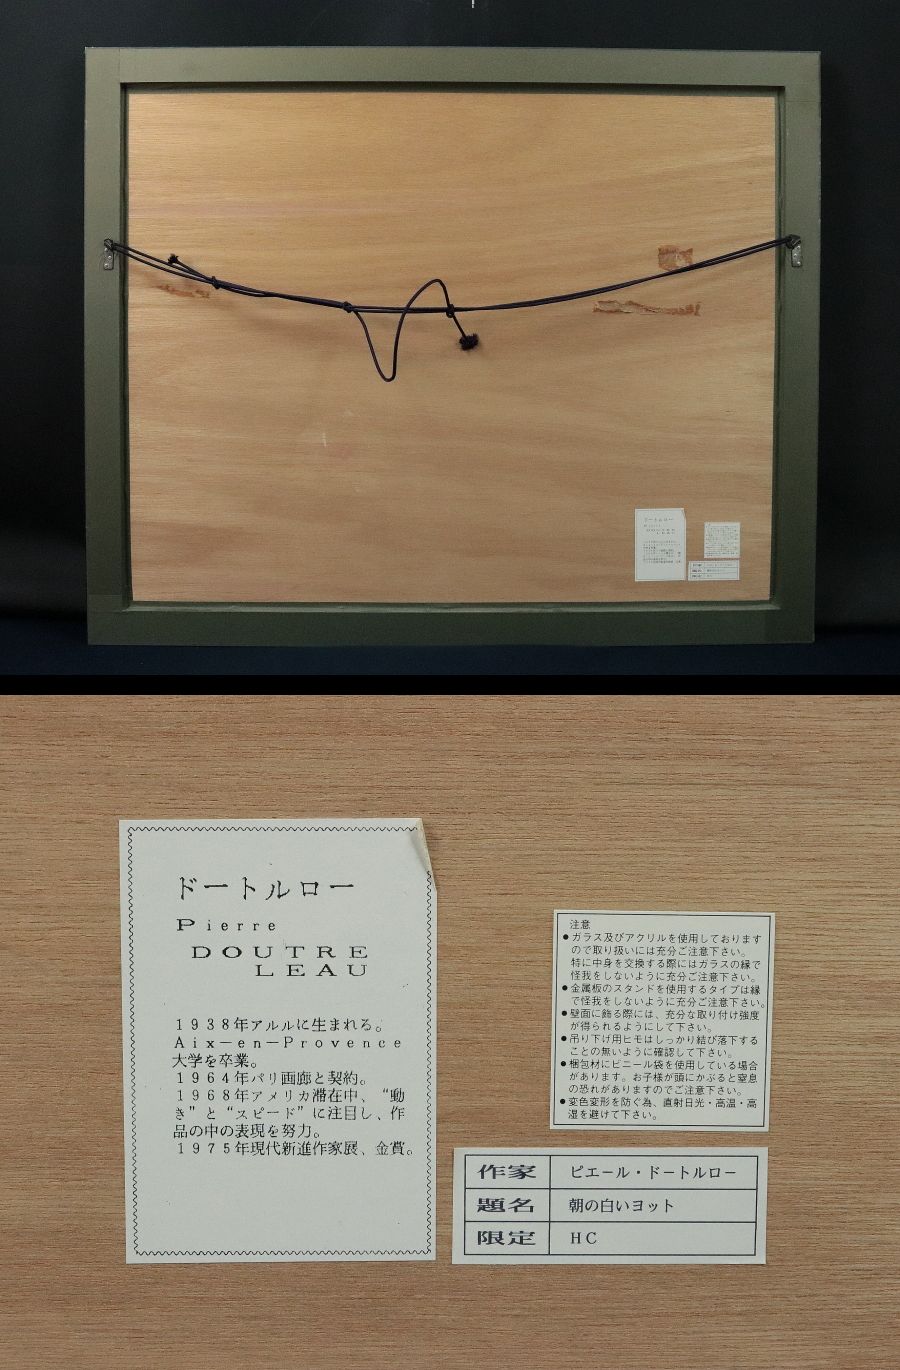 ドートルロー
Pierre
DOUTRE
LEAU
1938年アルルに生まれる。
Aix－en－Provence
大学を卒業。
1964年パリ画廊と契約。
1968年アメリカ滞在中、“動
き”と“スピード”に注目し、作
品の中の表現を努力。
1975年現代新進作家展、金賞。
注意
●ガラス及びアクリルを使用しております
ので取り扱いには充分ご注意下さい。
特に中身を交換する際にはガラスの縁で
怪我をしないように充分ご注意下さい。
●金属板のスタンドを使用するタイプは縁
で怪我をしないように充分ご注意下さい。
●壁面に飾る際には、充分な取り付け強度
が得られるようにして下さい。
●吊り下げ用ヒモはしっかり結び落下する
ことの無いように確認して下さい。
●梱包材にビニール袋を使用している場合
があります。お子様が頭にかぶると窒息
の恐れがありますのでご注意下さい。
●変色変形を防ぐ為、直射日光・高温・高
湿を避けて下さい。
作家 ピエール・ドートルロー
題名 朝の白いヨット
限定 HC